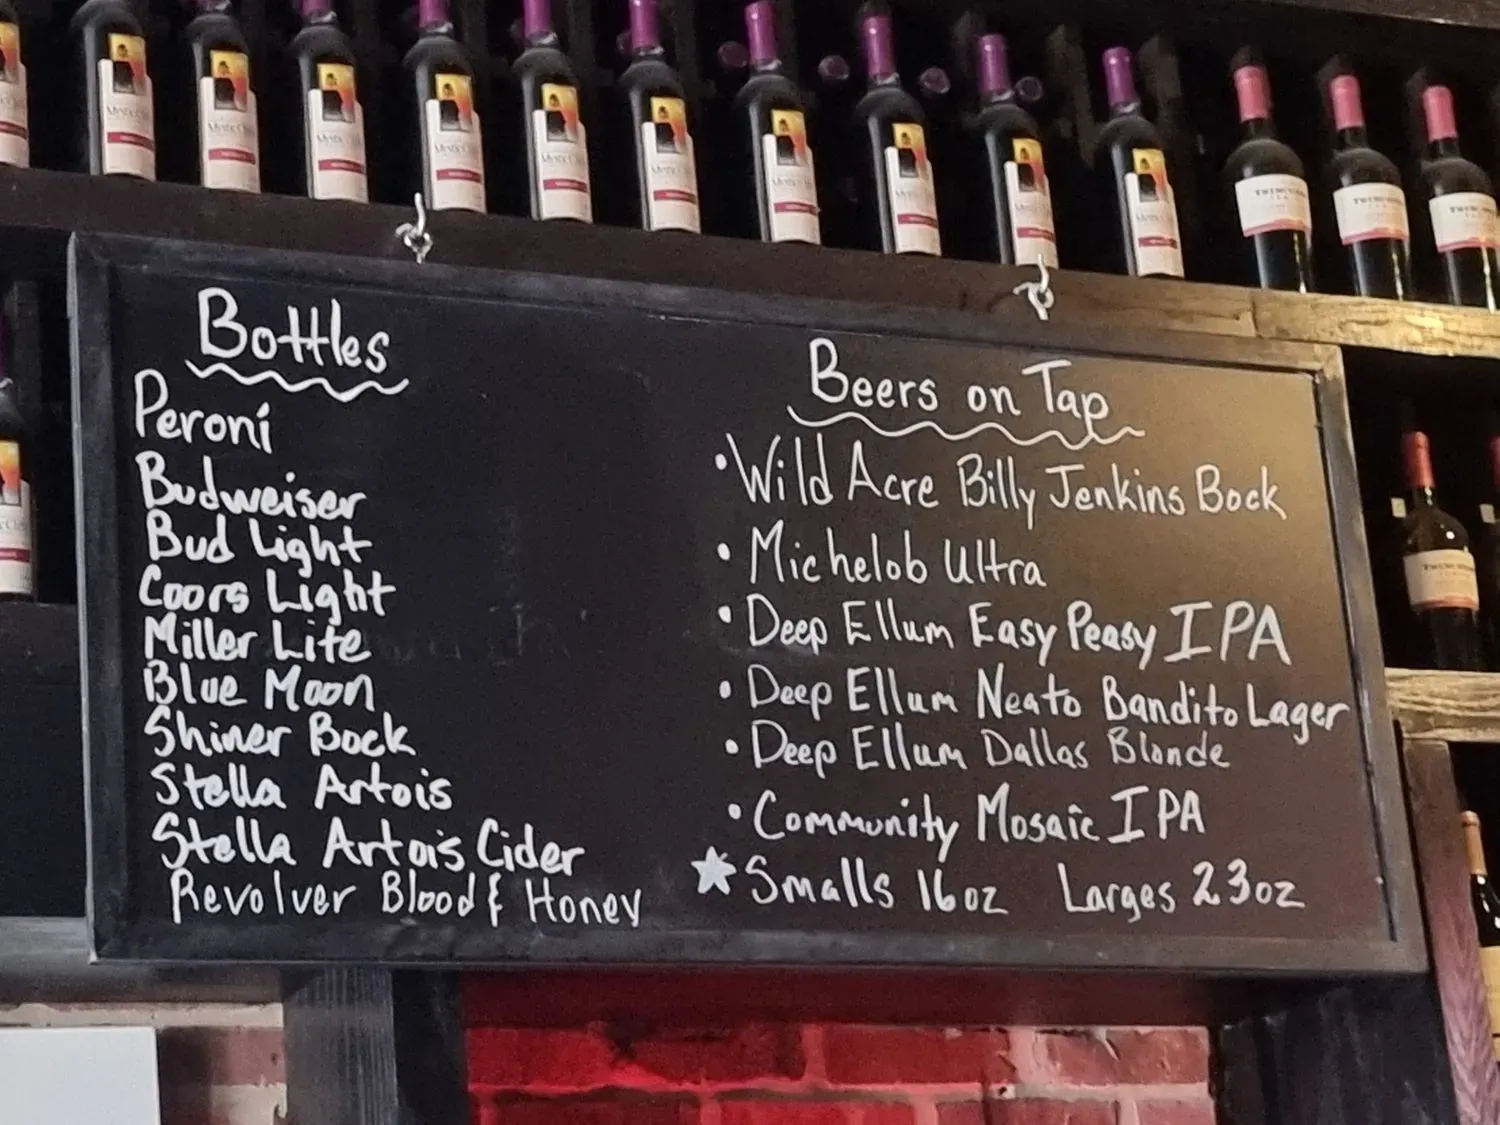 Bottles
Peroni
Budweiser
Bud Light
Coors Light
Miller Lite
Blue Moon
Shiner Bock
Stella Artois
Stella Artois Cider
Revolver Blood & Honey
Beers on Tap
• Wild Acre Billy Jenkins Bock
• Michelob Ultra
• Deep Ellum Easy Peasy IPA
• Deep Ellum Neato Bandito Lager
• Deep Ellum Dallas Blonde
• Community Mosaic IPA
★ Smalls 16oz Larges 23oz